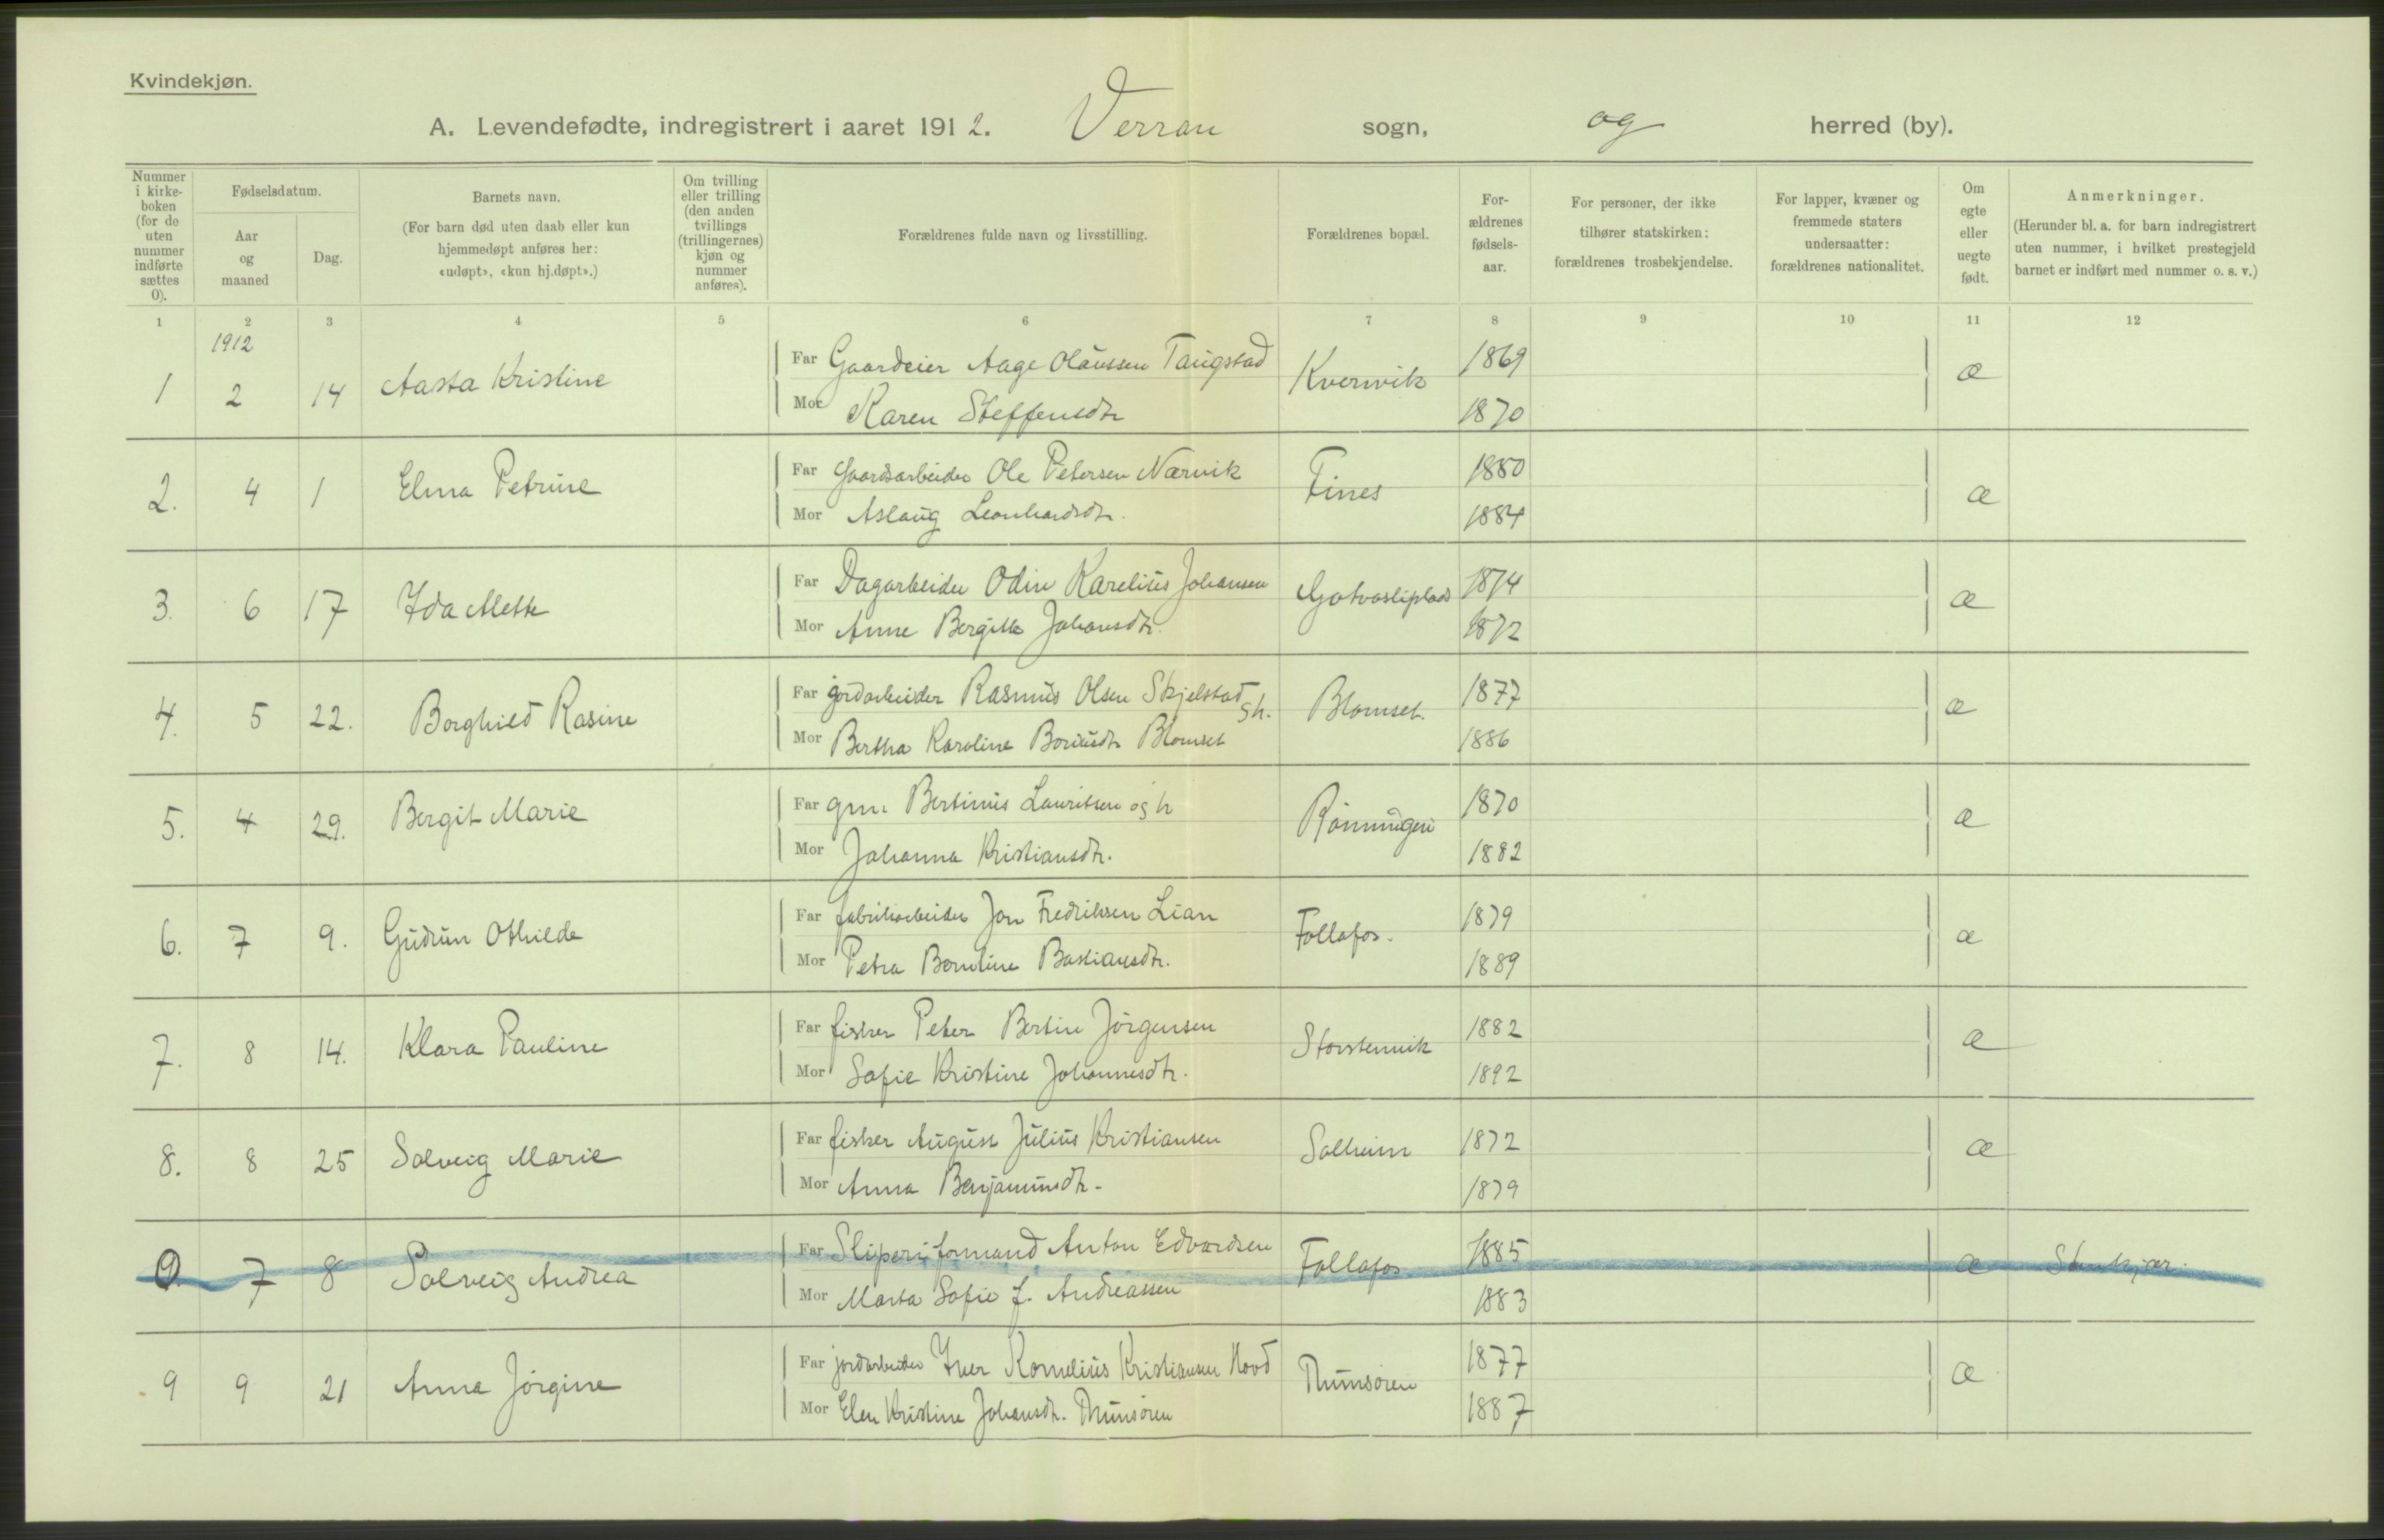 Kvindekjøn.
A. Levendefødte, indregistrert i aaret 1912. Verran sogn, og herred (by).
Nummer i kirke-boken (for de uten nummer indførte sættes 0).
Fødselsdatum.
Aar og maaned
Dag.
Barnets navn.
(For barn død uten daab eller kun hjemmedøpt anføres her: «udøpt», «kun hj.døpt».)
Om tvilling eller trilling (den anden tvillings (trillingernes) kjøn og nummer anføres).
Forældrenes fulde navn og livsstilling.
Forældrenes bopæl.
For-ældrenes fødsels-aar.
For personer, der ikke tilhører statskirken: forældrenes trosbekjendelse.
For lapper, kvæner og fremmede staters undersaatter: forældrenes nationalitet.
Om egte eller uegte født.
Anmerkninger.
(Herunder bl. a. for barn indregistrert uten nummer, i hvilket prestegjeld barnet er indført med nummer o. s. v.)
1 2 3 4 5 6 7 8 9 10 11 12
1912
1 2 14 Aasta Kristine Far Gaardeier Aage Olaussen Taugstad Kvernvik 1869 æ
Mor Karen Steffensdtr 1870
2. 4 1 Elma Petrine Far Gaardsarbeider Ole Petersen Nærvik Fines 1880 æ
Mor Aslaug Leonhardsdtr. 1884
3. 6 17 Ida Mette Far Dagarbeider Odin Karelius Johansen Gotvasliplads 1874 æ
Mor Anne Bergitte Johansdtr. 1872
4. 5 22. Borghild Rasine Far jordarbeider Rasmus Olsen Skjelstad gh. Blomset. 1877 æ
Mor Bertha Karoline Boriusdtr Blomset 1886
5. 4 29. Bergit Marie Far gm. Bertinus Lauritsen og h 1870 æ
Mor Johanna Kristiansdtr. 1882
6. 7 9. Gudrun Othilde Far fabrikarbeider Jon Fredriksen Lian Follafos. 1879 æ
Mor Petra Bastiansdtr. 1889
7. 8 14. Klara Pauline Far fisker Peter Bertin Jørgensen Storstenvik 1882 æ
Mor Sofie Kristine Johannesdtr. 1892
8. 8 25 Solveig Marie Far fisker August Julius Kristiansen Solheim 1872 æ
Mor Anna Benjaminsdtr. 1879
0. 7 8 Solveig Andrea Far Sliperiformand Anton Edvardsen Follafos 1885 æ Stenkjær.
Mor Marta Sofie f. Andreassen 1883
9 9 21 Anna Jørgine Far jordarbeider Iver Kornelius Kristiansen Hovd Thunsøren 1877 æ
Mor Elen Kristine Johansdtr. Thunsøren 1887